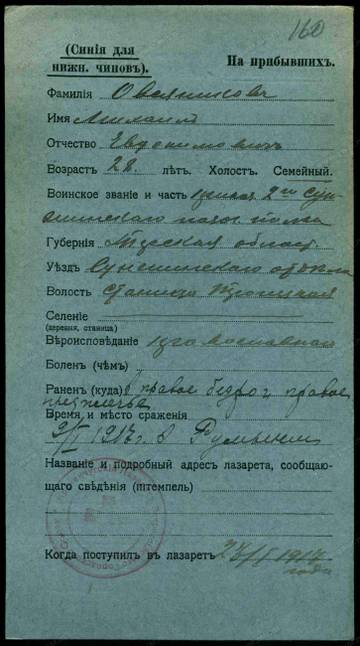 160
(Синія для
нижн. чиновъ).
На прибывшихъ.
Фамилія Овсянниковъ
Имя Михаилъ
Отчество Евдокимовичъ
Возрастъ 28. лѣтъ. Холост. Семейный.
Воинское званіе и часть 2го Сун-
женскаго казач. полка
Губернія Терская область
Уѣздъ Сунженскаго отдѣла
Волость Станица Троицкая
Селеніе
(деревня, станица)
Вѣроисповѣданіе православной
Боленъ (чѣмъ)
Раненъ (куда) въ правое бедро и правое
предплечье
Время и мѣсто сраженія
9/I 1917 г. в Румыніи
Названіе и подробный адресъ лазарета, сообщаю-
щаго свѣдѣнія (штемпель)
Когда поступилъ въ лазаретъ 23/I 1917
года